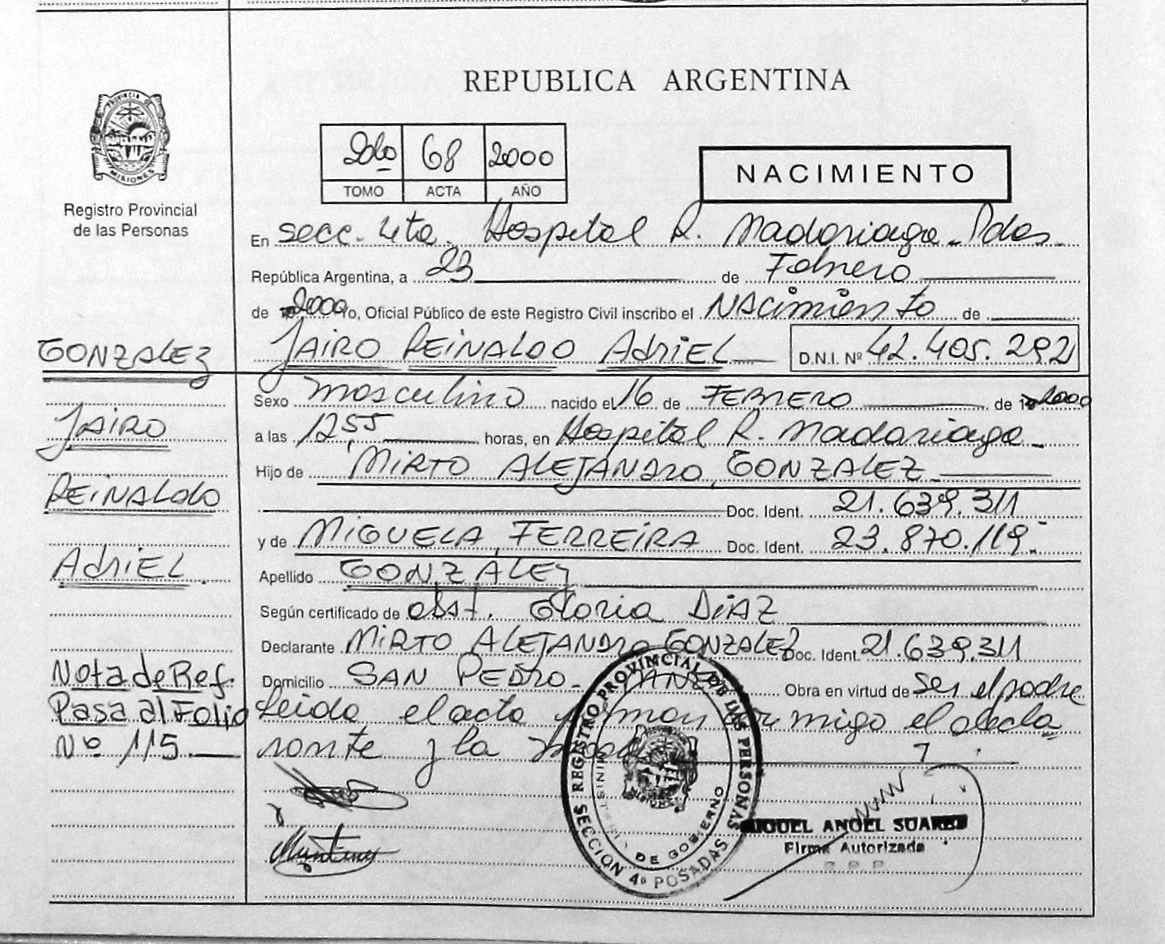 REPUBLICA ARGENTINA
PROVINCIA DE MISIONES
Registro Provincial
de las Personas
2do 68 2000
TOMO ACTA AÑO
NACIMIENTO
En secc. 4ta. Hospital R. Madariaga - Pdas.
República Argentina, a 23 de Febrero
de 2000 yo, Oficial Público de este Registro Civil inscribo el Nacimiento de
JAIRO REINALDO ADRIEL D.N.I. Nº 42.405.292
Sexo masculino nacido el 16 de FEBRERO de 2000
a las 12,55 horas, en Hospital R. Madariaga
Hijo de MIRTO ALEJANDRO GONZALEZ
Doc. Ident. 21.639.311
y de MIGUELA FERREIRA Doc. Ident. 23.870.119.
Apellido GONZALEZ
Según certificado de obst. Gloria DIAZ
Declarante MIRTO ALEJANDRO GONZALEZ Doc. Ident. 21.639.311
Domicilio SAN PEDRO - Obra en virtud de ser el padre
Leida el acta firman conmigo el decla
rante y la madre
GONZALEZ
JAIRO
REINALDO
ADRIEL
Nota de Ref.
Pasa al Folio
Nº 115
REGISTRO PROVINCIAL DE LAS PERSONAS
SECCION 4ª POSADAS
MINISTERIO DE GOBIERNO
MISIONES
MIGUEL ANGEL SUAREZ
Firma Autorizada
R.P.P.